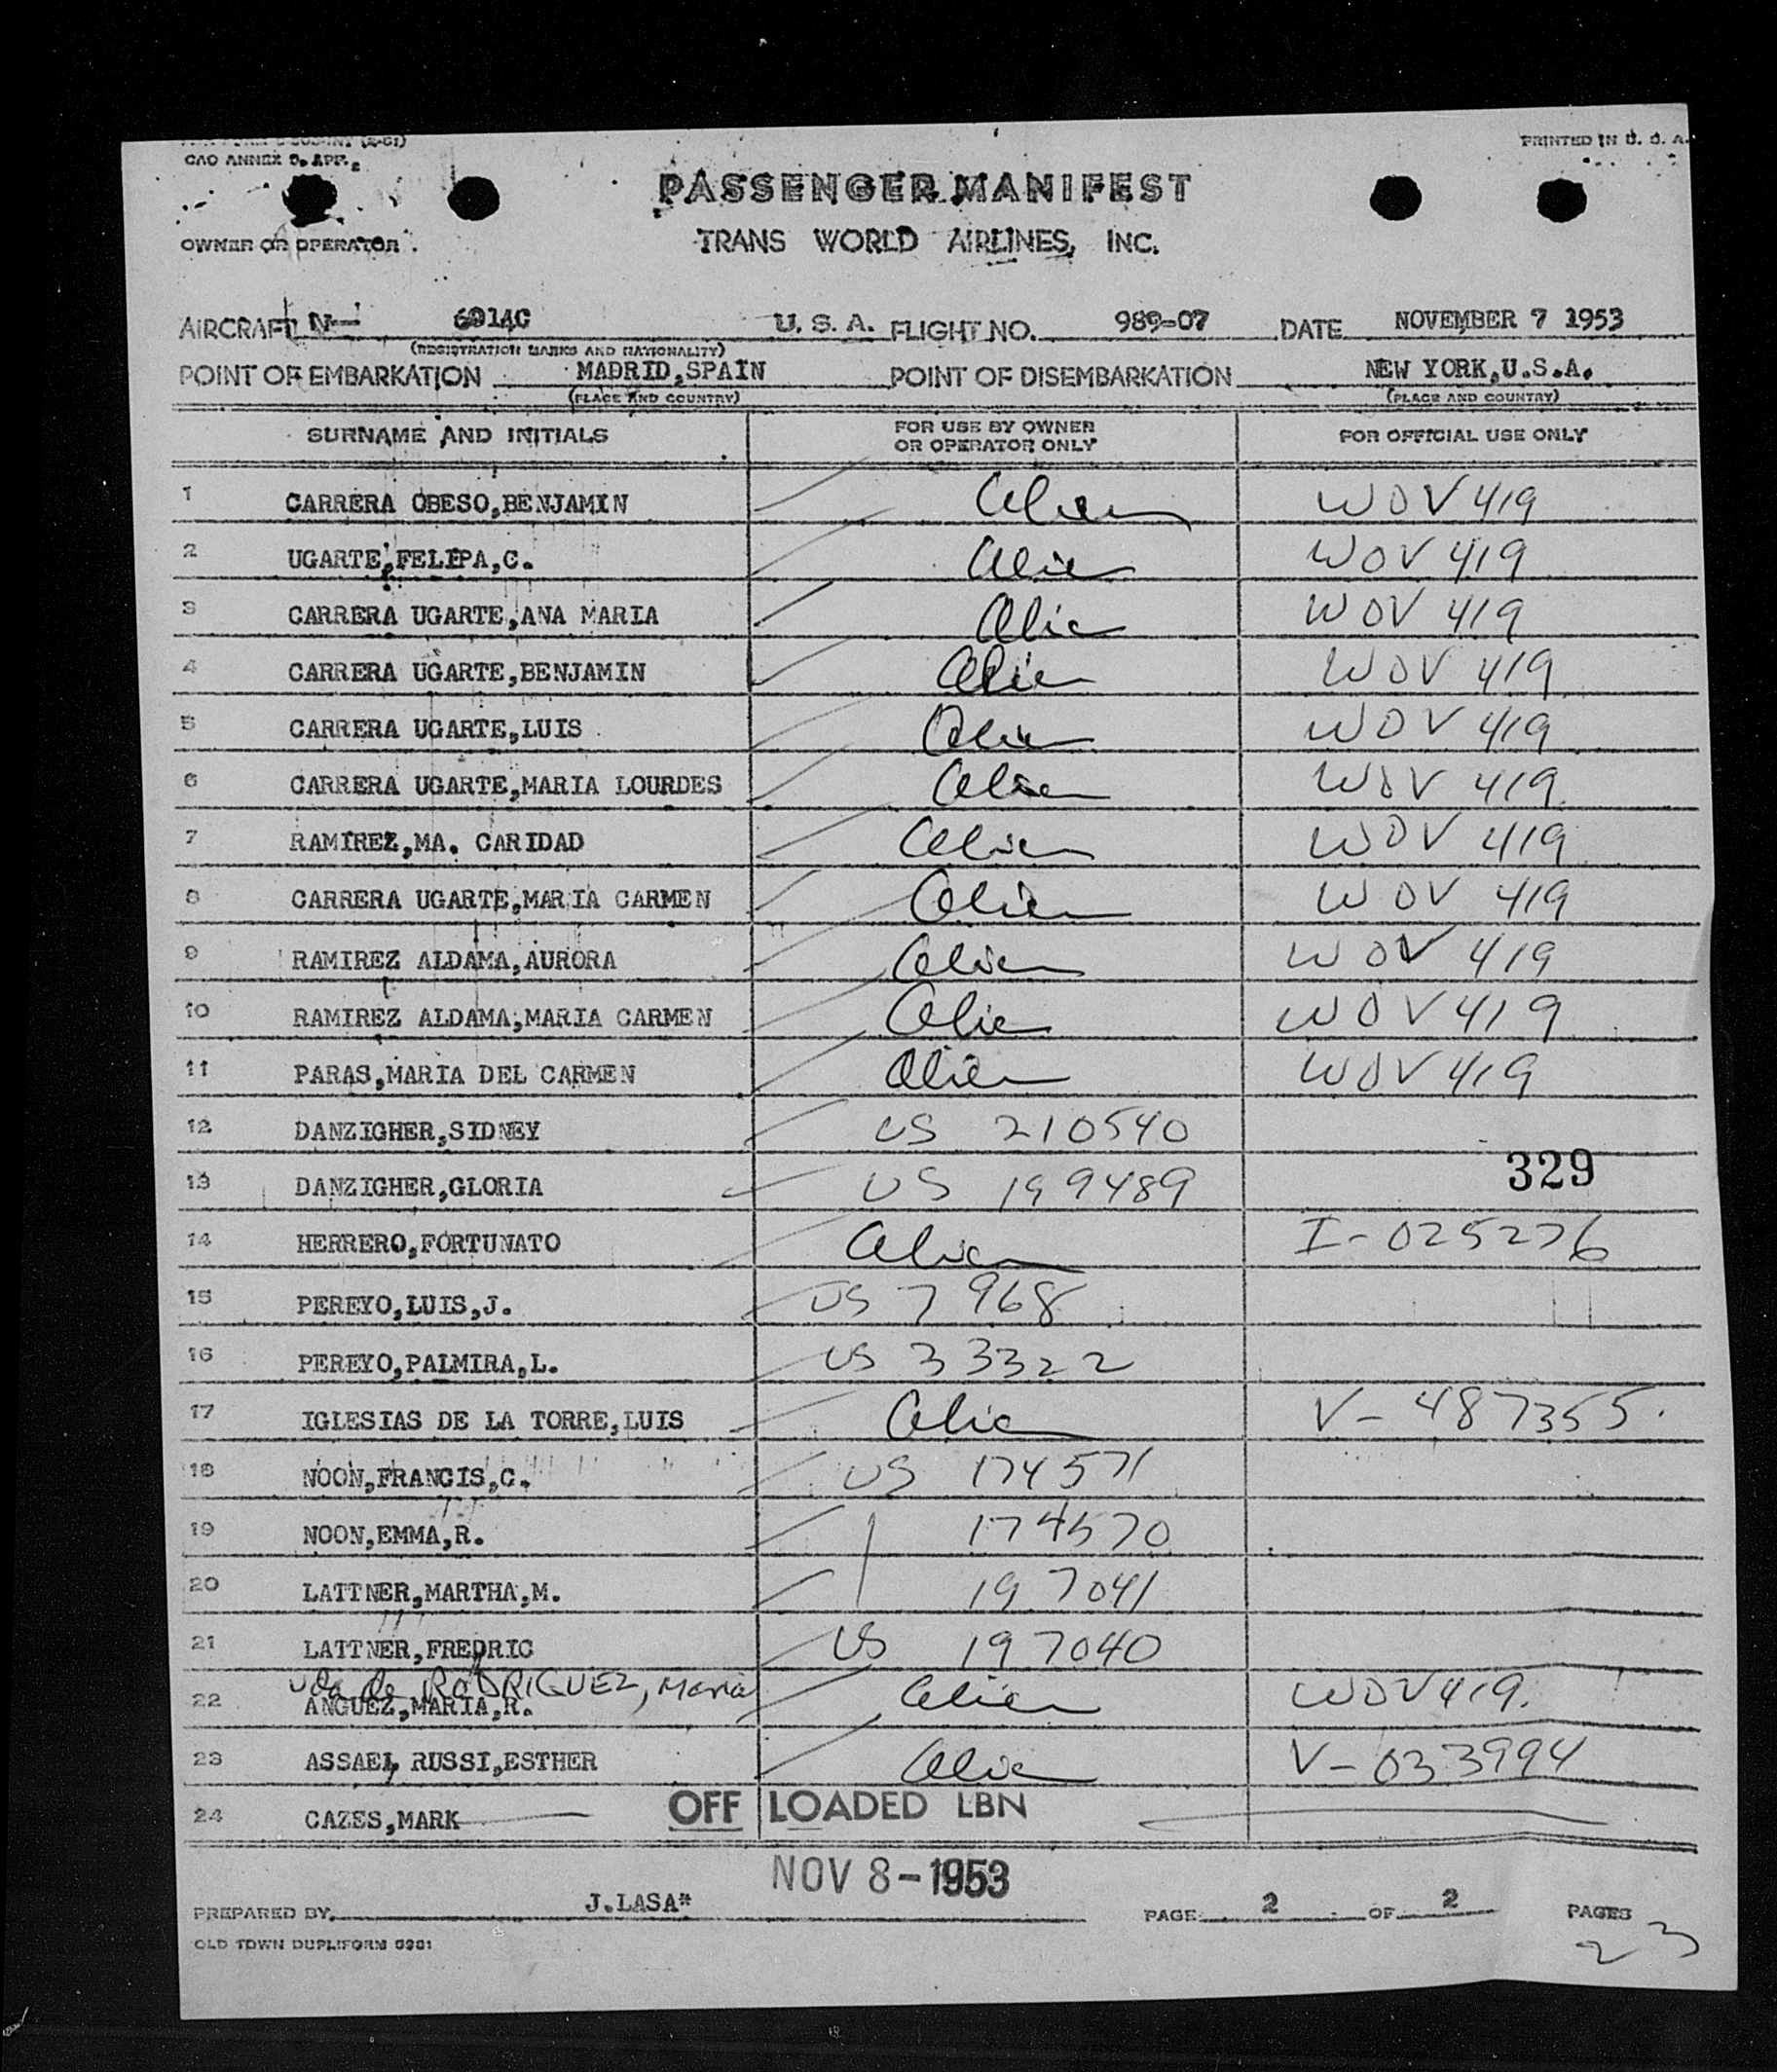 CAO ANNEX 9, APP.
PRINTED IN U. S. A.
PASSENGER MANIFEST
OWNER OR OPERATOR
TRANS WORLD AIRLINES, INC.
AIRCRAFT N- 6014C U. S. A. FLIGHT NO. 989-07 DATE NOVEMBER 7 1953
(REGISTRATION MARKS AND NATIONALITY)
POINT OF EMBARKATION MADRID,SPAIN POINT OF DISEMBARKATION NEW YORK,U.S.A.
(PLACE AND COUNTRY) (PLACE AND COUNTRY)
SURNAME AND INITIALS FOR USE BY OWNER OR OPERATOR ONLY FOR OFFICIAL USE ONLY
1 CARRERA OBESO,BENJAMIN Alien WOV 419
2 UGARTE,FELIPA,C. Alien WOV 419
3 CARRERA UGARTE,ANA MARIA Alien WOV 419
4 CARRERA UGARTE,BENJAMIN Alien WOV 419
5 CARRERA UGARTE,LUIS Alien WOV 419
6 CARRERA UGARTE,MARIA LOURDES Alien WOV 419
7 RAMIREZ,MA. CARIDAD Alien WOV 419
8 CARRERA UGARTE,MARIA CARMEN Alien WOV 419
9 RAMIREZ ALDAMA,AURORA Alien WOV 419
10 RAMIREZ ALDAMA,MARIA CARMEN Alien WOV 419
11 PARAS,MARIA DEL CARMEN Alien WOV 419
12 DANZIGHER,SIDNEY US 210540
329
13 DANZIGHER,GLORIA US 199489
14 HERRERO,FORTUNATO Alien I-025276
15 PEREYO,LUIS,J. US 7968
16 PEREYO,PALMIRA,L. US 33322
17 IGLESIAS DE LA TORRE,LUIS Alien V-487355.
18 NOON,FRANCIS,C. US 174571
19 NOON,EMMA,R. 174570
20 LATTNER,MARTHA,M. 197041
21 LATTNER,FREDRIC US 197040
Vda de RODRIGUEZ, Maria
22 ANGUEZ,MARIA,R. Alien WOV 419.
23 ASSAEL RUSSI,ESTHER Alien V-033994
24 CAZES,MARK OFF LOADED LBN
NOV 8-1953
PREPARED BY J.LASA* PAGE 2 OF 2 PAGES
OLD TOWN DUPLIFORM
23